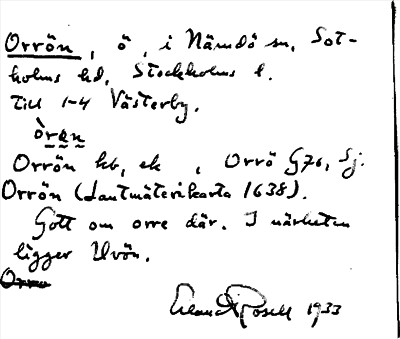 Orrön, ö, i Nämdö sn, Sot-
holms hd, Stockholms l.
Till 1-4 Västerby.
òrən
Orrön hb, ek , Orrö G76, Sj.
Orrön (Lantmäterikarta 1638).
Gott om orre där. I närheten
ligger Uvön.
Orro
Erland Rosell 1933